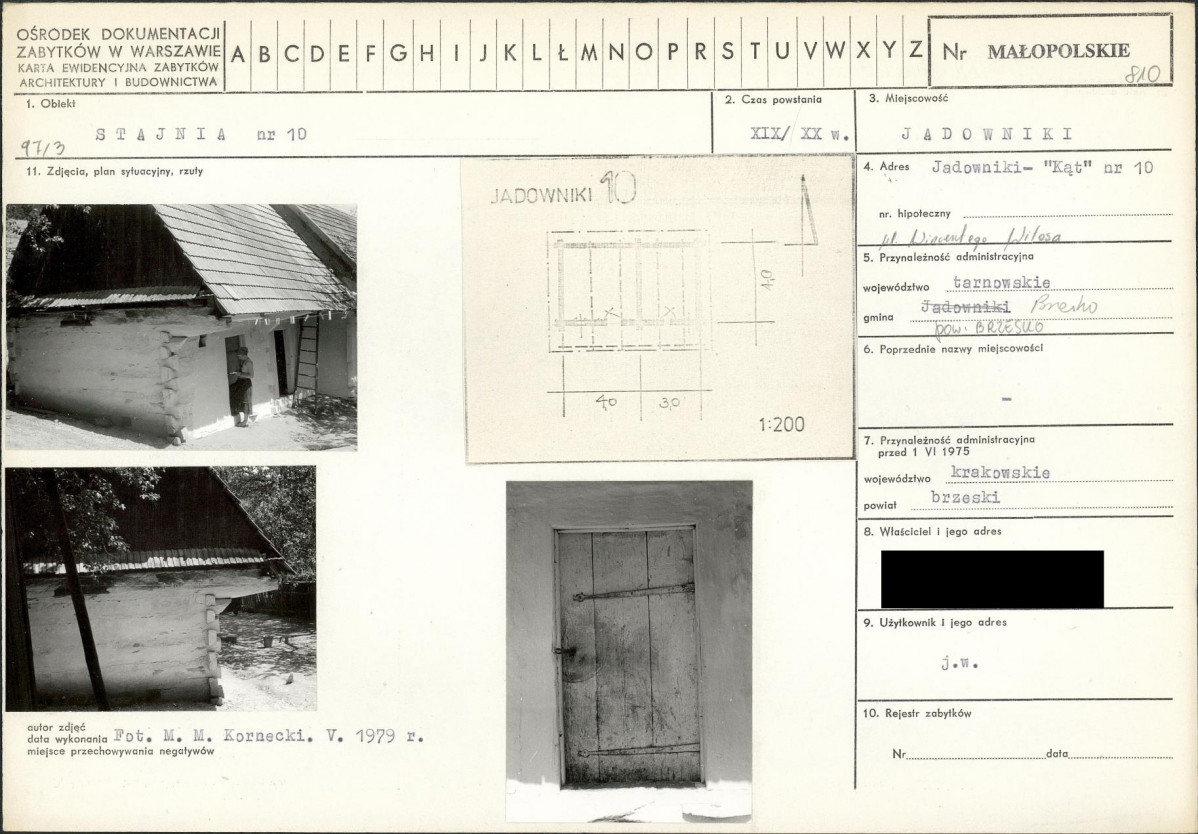 OŚRODEK DOKUMENTACJI
ZABYTKÓW W WARSZAWIE
KARTA EWIDENCYJNA ZABYTKÓW
ARCHITEKTURY I BUDOWNICTWA
A B C D E F G H I J K L Ł M N O P R S T U V W X Y Z
Nr MAŁOPOLSKIE
810
1. Obiekt
STAJNIA nr 10
97/3
2. Czas powstania
XIX/ XX w.
3. Miejscowość
JADOWNIKI
11. Zdjęcia, plan sytuacyjny, rzuty
JADOWNIKI 10
4,0
4,0 3,0
1:200
autor zdjęć
data wykonania Fot. M. M. Kornecki. V. 1979 r.
miejsce przechowywania negatywów
4. Adres Jadowniki- "Kąt" nr 10
nr. hipoteczny
ul. Wincentego Witosa
5. Przynależność administracyjna
województwo tarnowskie
gmina Jadowniki Brzesko
pow. BRZESKO
6. Poprzednie nazwy miejscowości
-
7. Przynależność administracyjna
przed 1 VI 1975
województwo krakowskie
powiat brzeski
8. Właściciel i jego adres
9. Użytkownik i jego adres
j.w.
10. Rejestr zabytków
Nr data